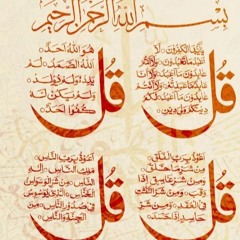 بسم الله الرحمن الرحيم
قل
يأيها الكفرون لا
أعبد ما تعبدون ولا أنتم
عابدون ما أعبد ولا أنا
عابد ما عبدتم ولا أنتم
عابدون ما أعبد لكم
دينكم ولي دين
قل
هو الله أحد
الله الصمد لم
يلد ولم يولد
ولم يكن له
كفوا أحد
قل
أعوذ برب الفلق
من شر ما خلق
ومن شر غاسق إذا
وقب ومن شر النفثت
في العقد ومن شر
حاسد إذا حسد
قل
أعوذ برب الناس
ملك الناس إله
الناس من شر الوسواس
الخناس الذي يوسوس
في صدور الناس من
الجنة والناس